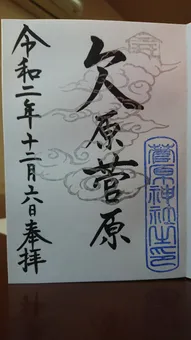 菅原神社之印
久原菅原
令和二年十二月六日奉拝